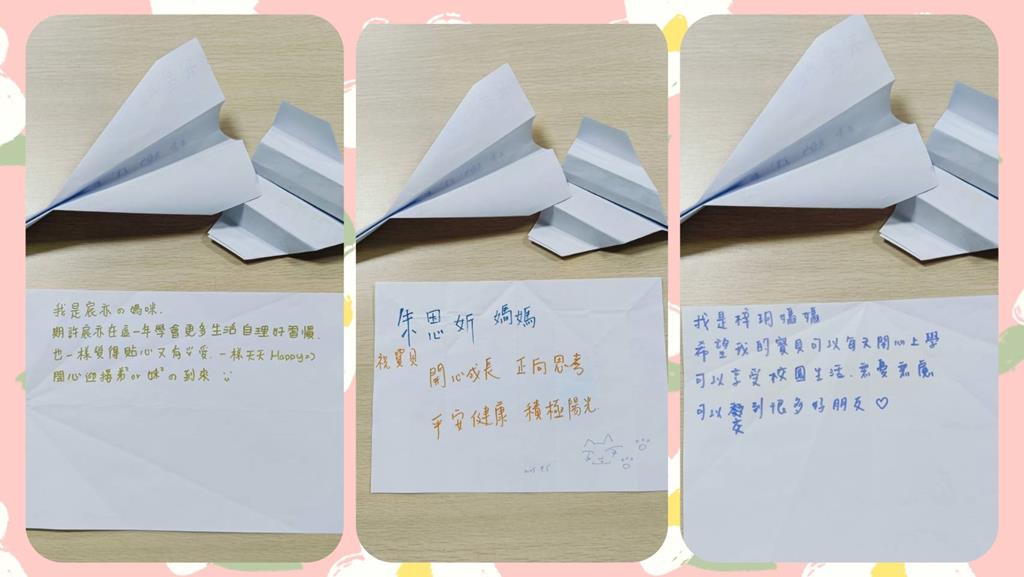 我是宸亦の媽咪.
期許宸亦在這一年學會更多生活自理好習慣.
也一樣覺得貼心又有愛. 一樣天天Happy=)
開心迎接弟²or妹²の到來
朱恩妡 媽媽
祝寶貝
開心成長 正向思考
平安健康 積極陽光
我是梓玥媽媽
希望我的寶貝可以每天開心上學
可以享受校園生活.無憂無慮
可以交到很多好朋友♡